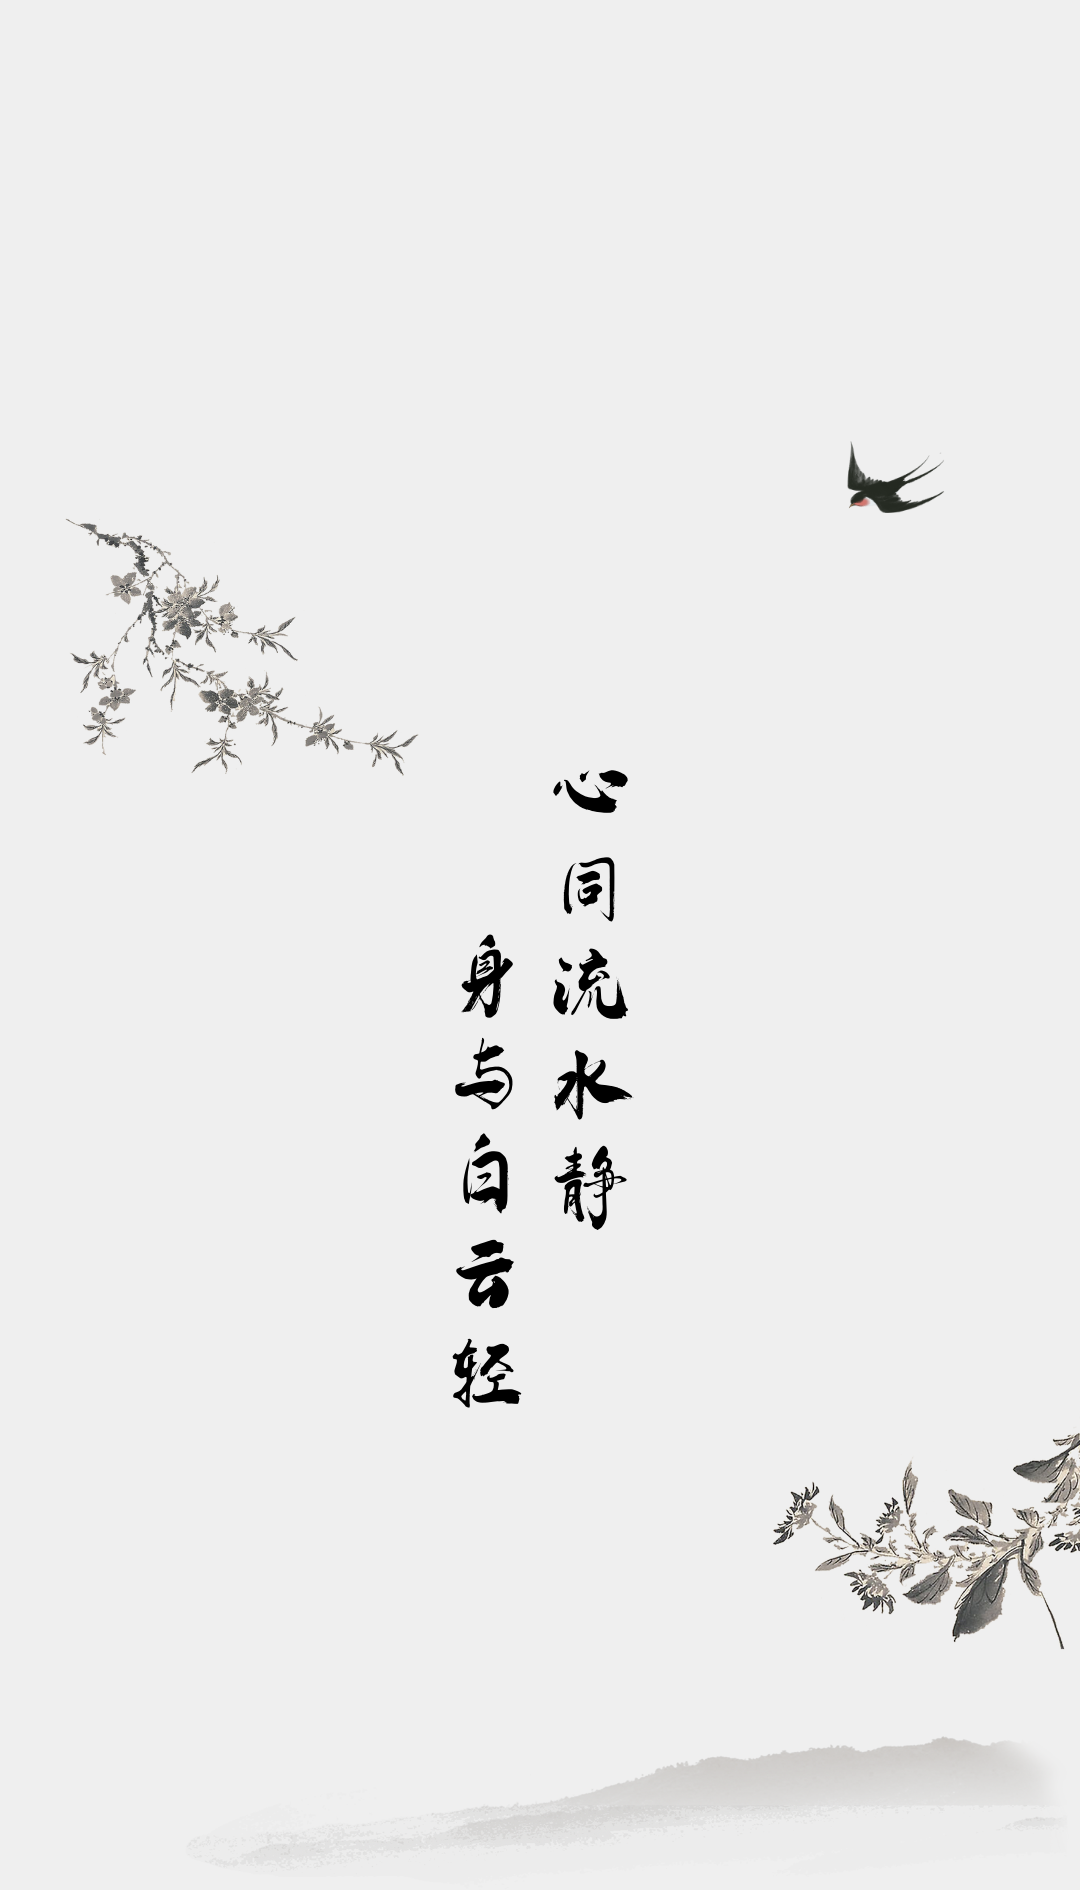 心同流水静
身与白云轻